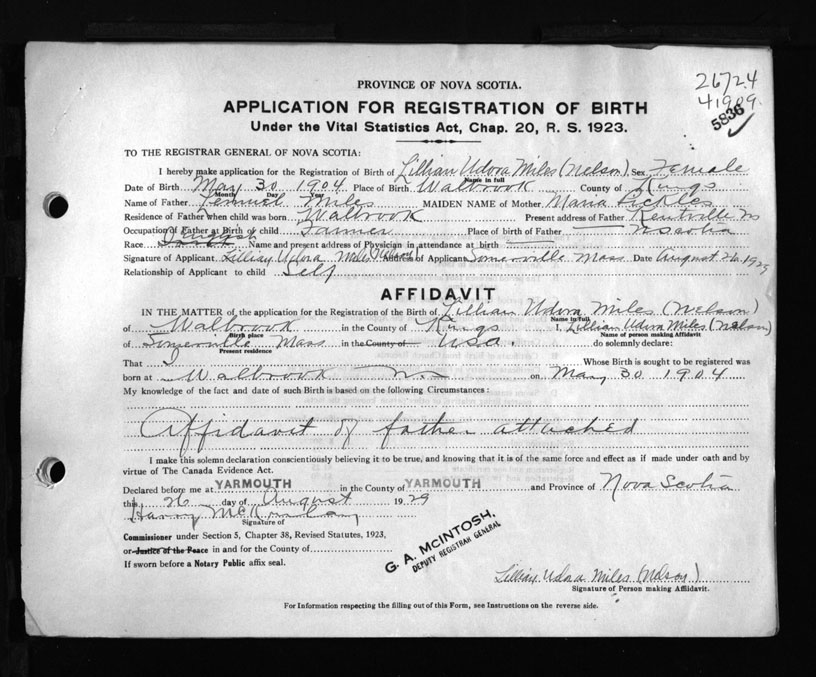 26724
41909.
5836
PROVINCE OF NOVA SCOTIA.
APPLICATION FOR REGISTRATION OF BIRTH
Under the Vital Statistics Act, Chap. 20, R. S. 1923.
TO THE REGISTRAR GENERAL OF NOVA SCOTIA:
I hereby make application for the Registration of Birth of Lillian Udora Miles (Nelson) Sex Female
Name in full
Date of Birth May 30 1904 Place of Birth Walbrook County of Kings
Month Day Year
Name of Father Lemuel Miles MAIDEN NAME of Mother Maria Pickles
Residence of Father when child was born Walbrook Present address of Father Kentville Ns
Occupation of Father at Birth of child Farmer Place of birth of Father N Scotia
Race English Name and present address of Physician in attendance at birth
Signature of Applicant Lillian Udora Miles (Nelson) Address of Applicant Somerville Mass Date August 26 1929
Relationship of Applicant to child Self
AFFIDAVIT
IN THE MATTER of the application for the Registration of the Birth of Lillian Udora Miles (Nelson)
Name in full
of Walbrook in the County of Kings I, Lillian Udora Miles (Nelson)
Birth place Name of person making Affidavit
of Somerville Mass in the County of Usa. do solemnly declare:
Present residence
That I Whose Birth is sought to be registered was
born at Walbrook Ns on May 30 1904
My knowledge of the fact and date of such Birth is based on the following Circumstances:
Affidavit of father attached
I make this solemn declaration conscientiously believing it to be true, and knowing that it is of the same force and effect as if made under oath and by
virtue of The Canada Evidence Act.
Declared before me at YARMOUTH in the County of YARMOUTH and Province of Nova Scotia
this 26 day of August 1929
Harry McKinlay
Signature of
Commissioner under Section 5, Chapter 38, Revised Statutes, 1923,
or Justice of the Peace in and for the County of
If sworn before a Notary Public affix seal.
G. A. McINTOSH,
DEPUTY REGISTRAR GENERAL
Lillian Udora Miles (Nelson)
Signature of Person making Affidavit.
For Information respecting the filling out of this Form, see Instructions on the reverse side.